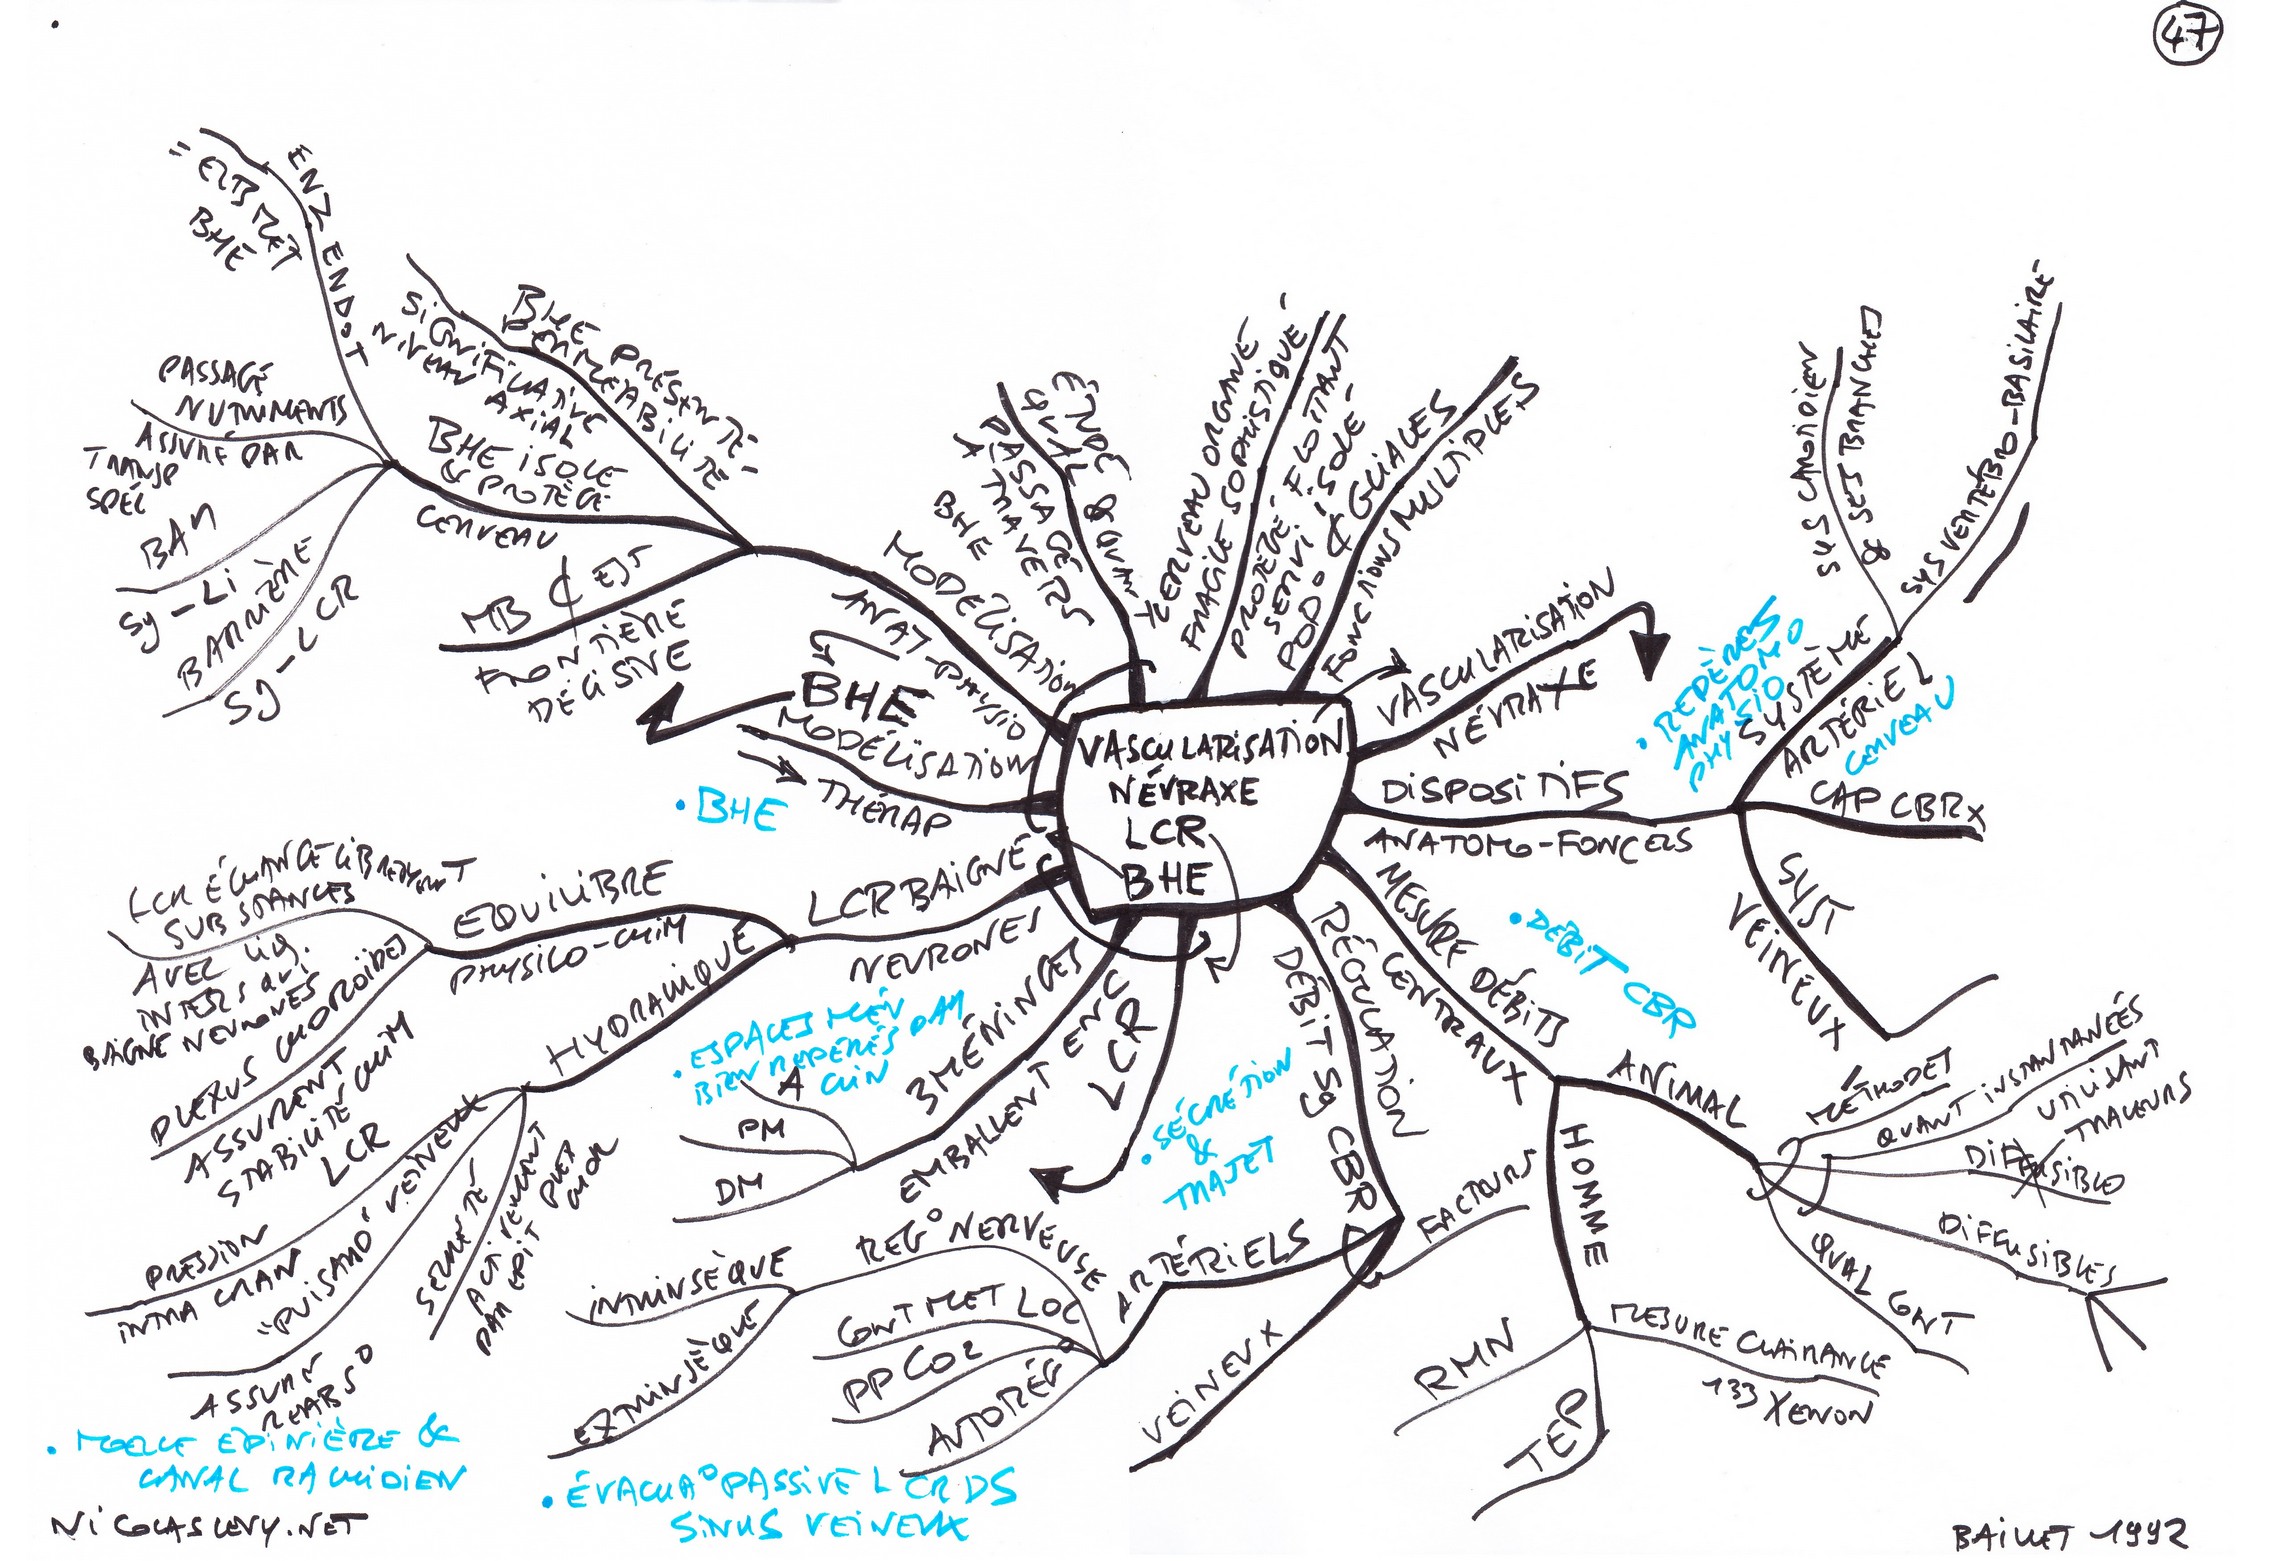 47
VASCULARISATION
NÉVRAXE
LCR
BHE
VASCULARISATION
NÉVRAXE
DISPOSITIFS
ANATOMO-FONCELS
SYSTÈME
ARTÉRIEL
CERVEAU
SYS CAROTIDIEN
& SES BRANCHES
SYS VERTÉBRO-BASILAIRE
CAP CBRX
SYST
VEINEUX
• REPÈRES
ANATOMO
PHYSIO
MESURE DÉBITS
CENTRAUX
• DÉBIT CBR
ANIMAL
MÉTHODES
QUANT INSTANTANÉES
UTILISANT
TRACEURS
DIFFUSIBLES
QUAL CONT
HOMME
MESURE CLAIRANCE
133 XENON
TEP
RMN
RÉGULATION
DÉBIT SG CBR
FACTEURS
ARTÉRIELS
VEINEUX
REG° NERVEUSE
INTRINSÈQUE
EXTRINSÈQUE
CONT MET LOC
PP CO2
AUTORÉG°
LCR
• SÉCRÉTION
&
TRAJET
3 MÉNINGES
EMBALLENT ENC
A
PM
DM
• ESPACES MÉN
BIEN REPÉRÉS PAR
CLIN
LCR BAIGNE
NEVRONES
EQUILIBRE
PHYSICO-CHIM
LCR ÉCHANGE LIBREMENT
SUBSTANCES
AVEC LIQ.
INTERS QUI
BAIGNE NEVRONES
PLEXUS CHOROÏDES
ASSURENT
STABILITÉ CHIM
LCR
HYDRAULIQUE
PRESSION
INTRA CRAN
"PUISARD" VEINEUX
ASSUR
REABS°
SECRETÉ
ACTIVEMENT
PAR EPIT PLEX
CHOR
• MOELLE EPINIÈRE &
CANAL RACHIDIEN
• ÉVACUA° PASSIVE LCR DS
SINUS VEINEUX
BHE
• BHE
MODÉLISATION
THÉRAP
MODÉLISATION
ANAT-PHYSIO
MB ¢ EST
FRONTIÈRE
DÉCISIVE
BHE ISOLE
& PROTÈGE
CERVEAU
BHE PRÉSENTE
PERMÉABILITÉ
SIGNIFICATIVE
NIVEAU AXIAL
ENZ ENDOT
= EZB MET
BHE
PASSAGE
NUTRIMENTS
ASSURÉ PAR
TRANSP
SPÉC
BAR
SG-LI
BARRIÈRE
SG-LCR
ÉTUDE
QUAL & QUANT
PASSAGES
À TRAVERS
BHE
CERVEAU ORGANE
FRAGILE SOPHISTIQUÉ
PROTÉGÉ FLOTTANT
SERVI ISOLÉ
POD° ¢ GLIALES
FONCTIONS MULTIPLES
NICOLASLEVY.NET
BAILLET 1992